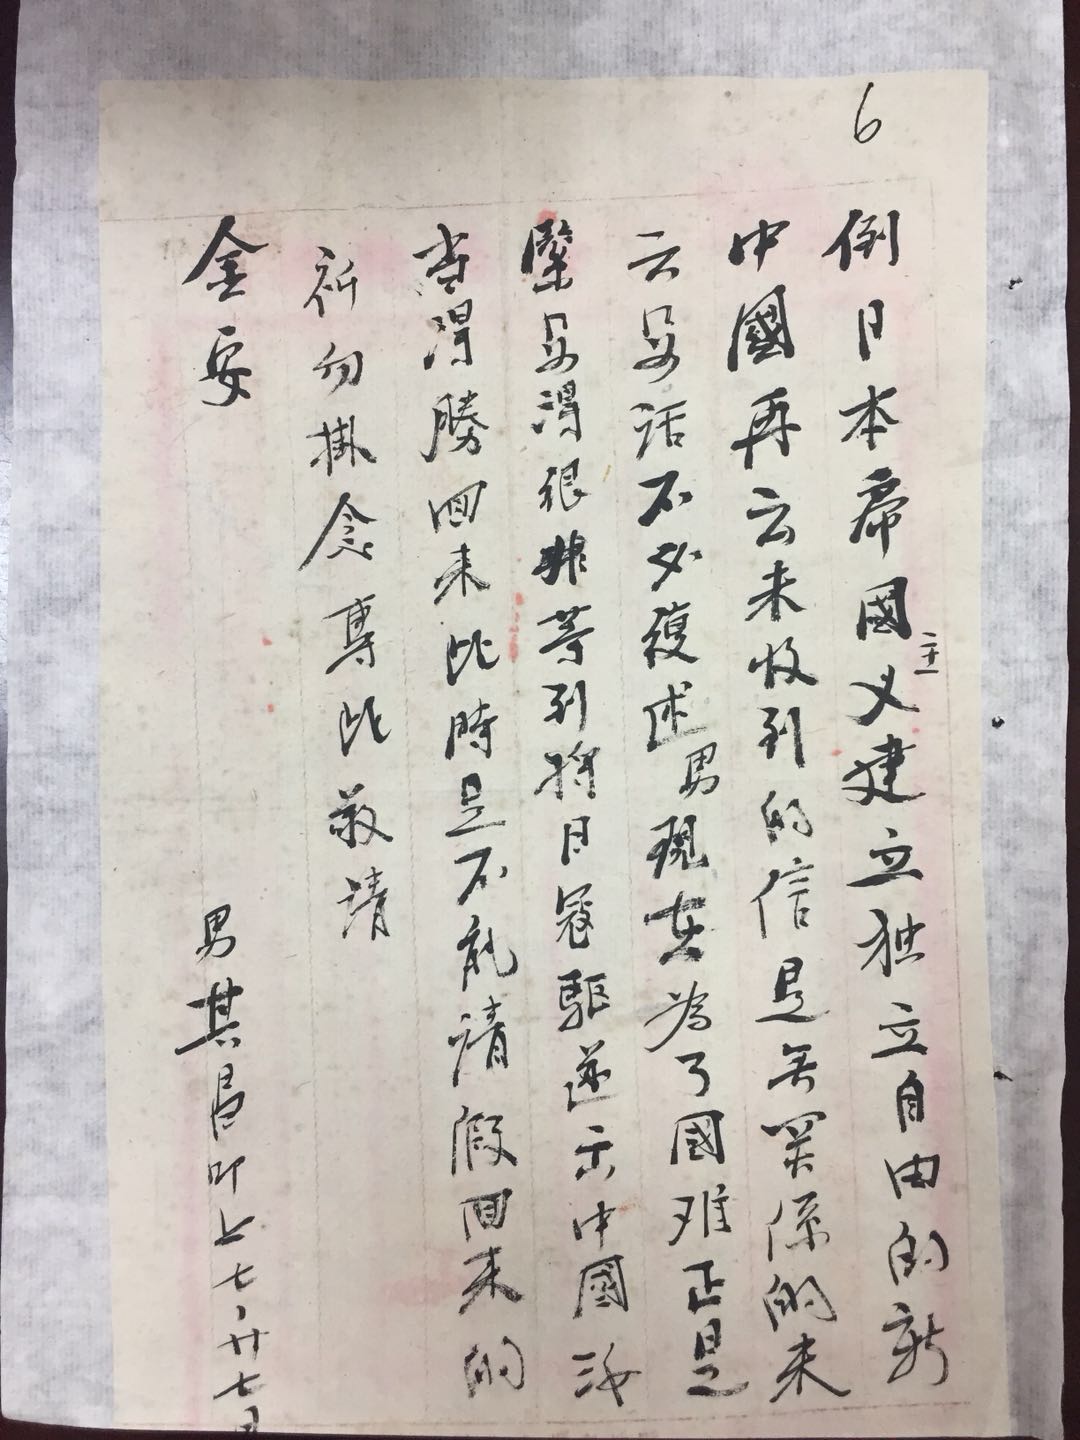 6
倒日本帝國主义建立独立自由的新
中國再云未收到的信是无関係的来
云安話不必複述男現在为了國难正是
緊要得很非等到将日寇驅逐示中國海
当得勝回来此時是不能請假回来的
祈勿掛念專此敬請
金安
男其昌叩上七、廿七日